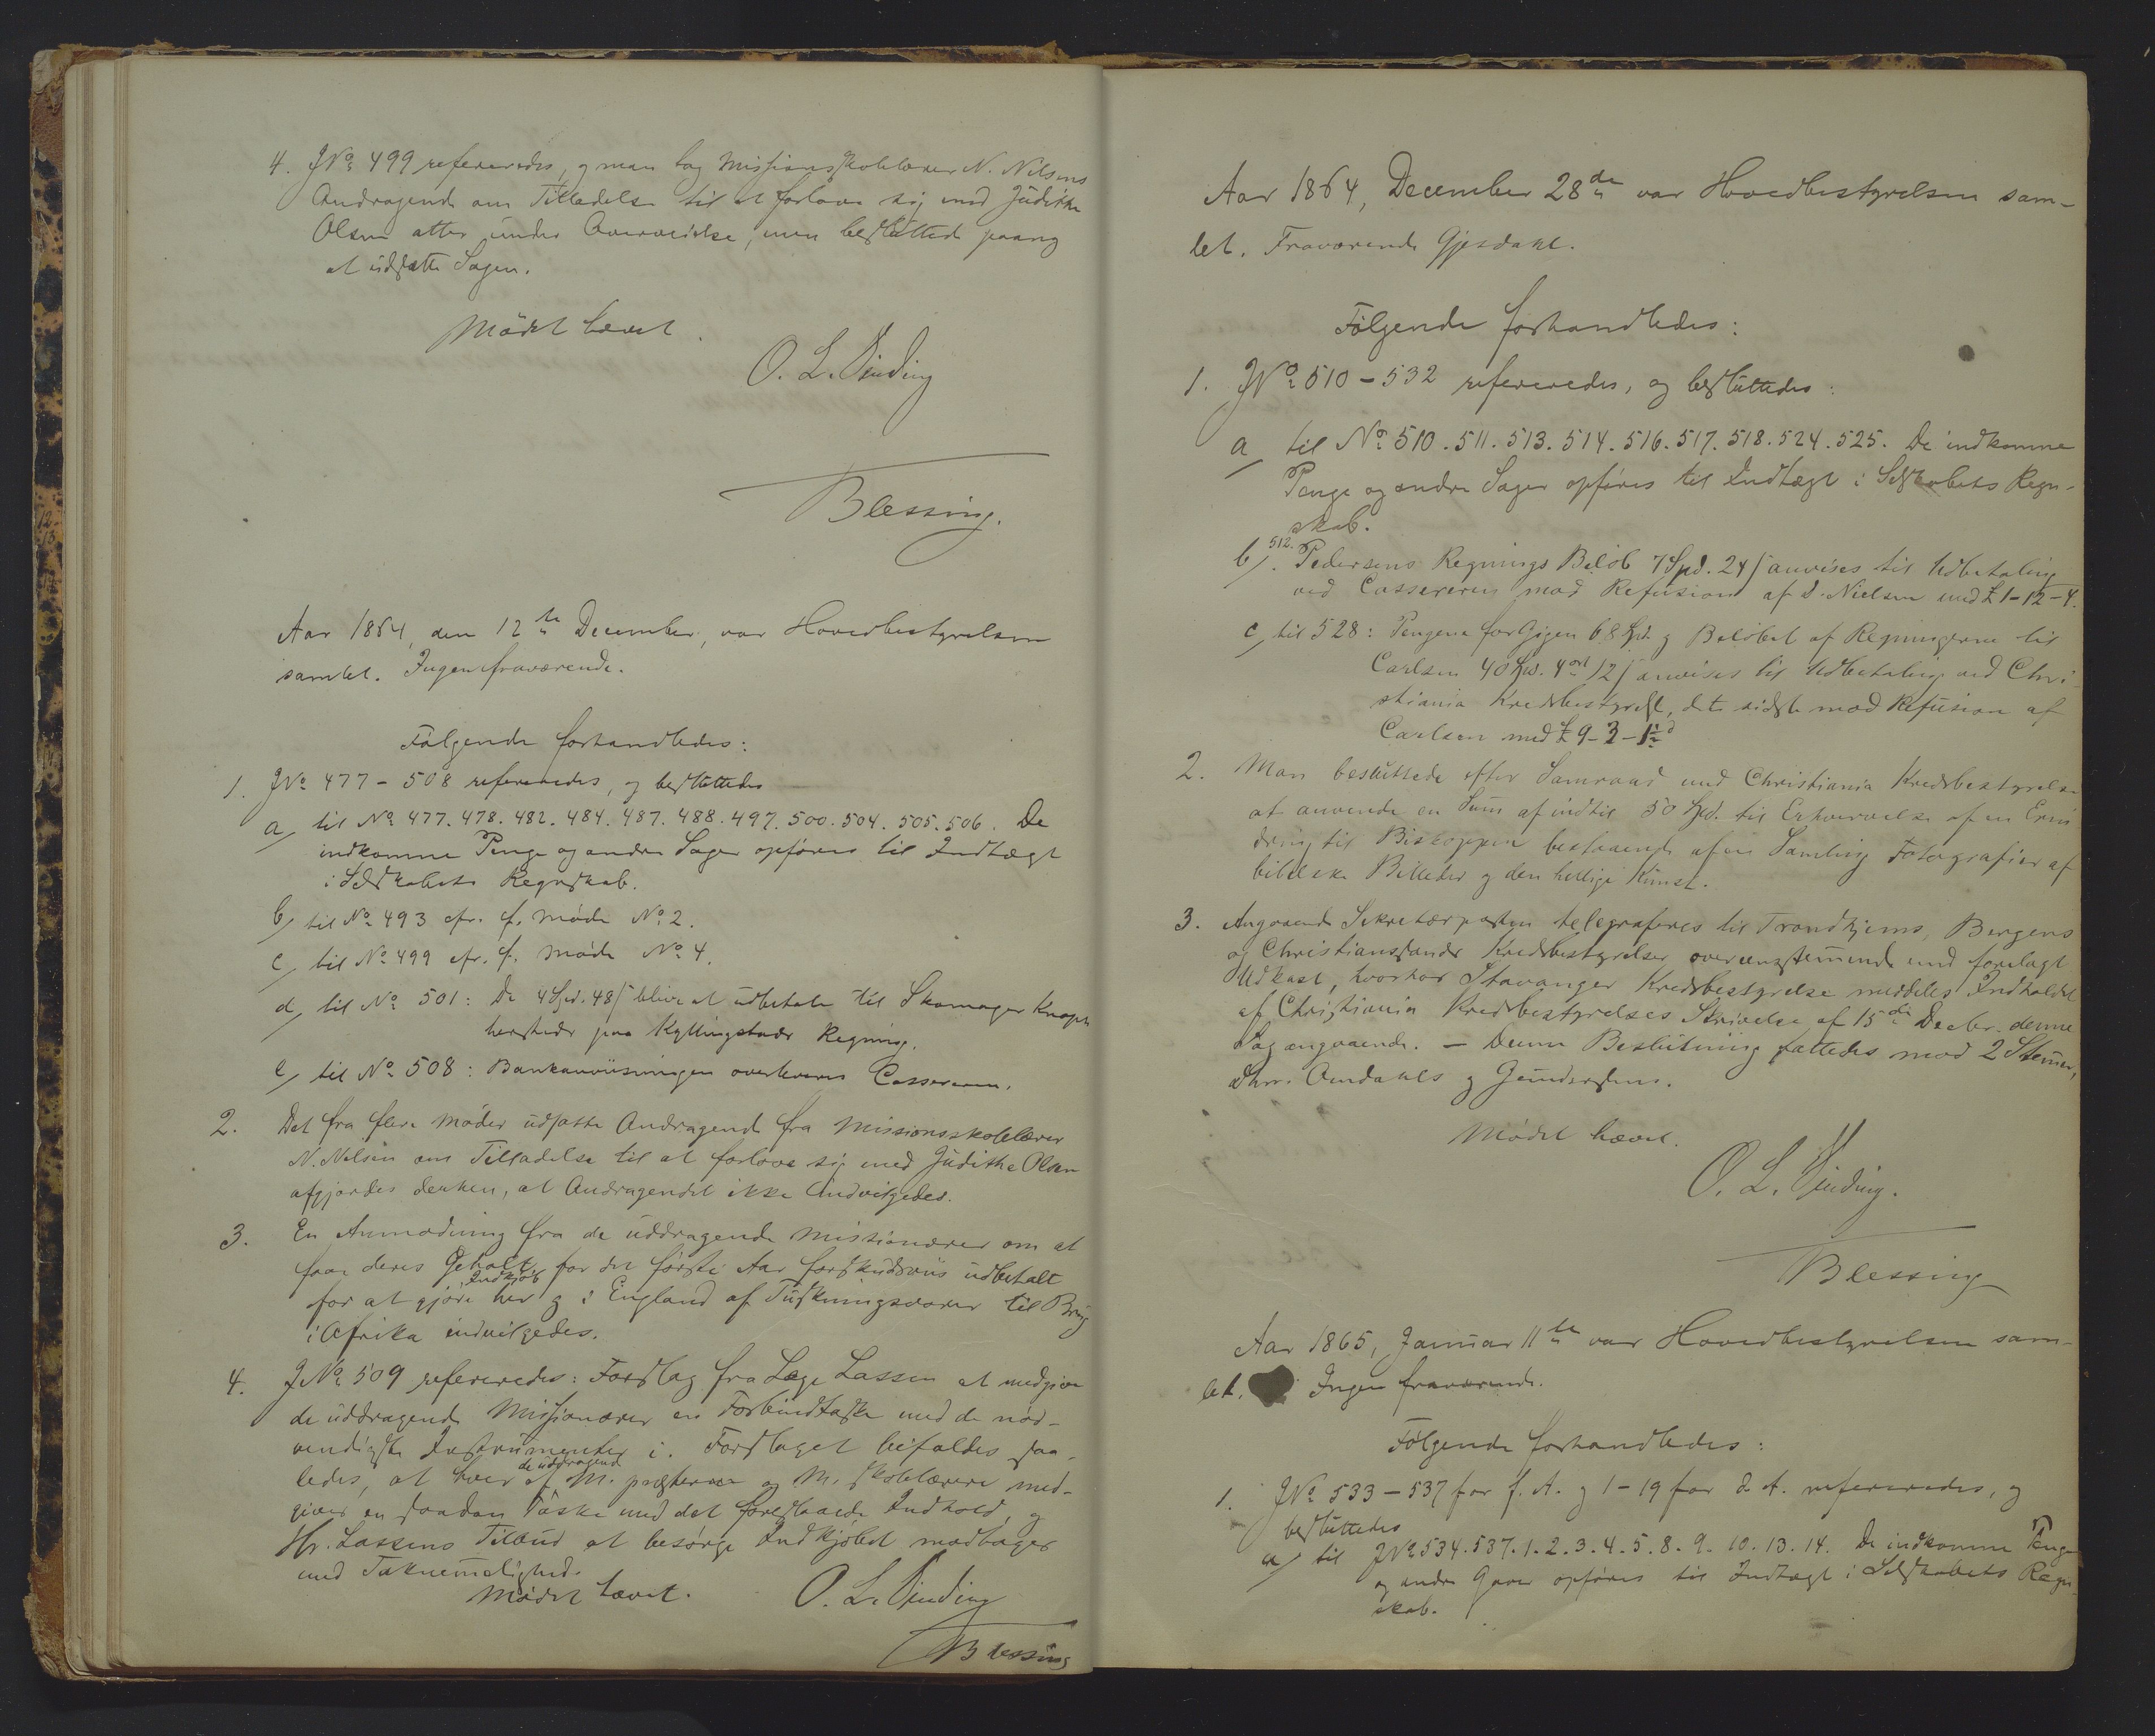 4. JNo 499 refereredes, og man tog Missionsskolelærer N. Nilsens
Andragende om Tilladelse til at forlove sig med Judithe
Olsen atter under Overveielse, men besluttede paany
at udsætte Sagen.
Mödet hævet.
O. L. Sinding
Blessing.
Aar 1864, den 12te December, var Hovedbestyrelsen
samlet. Ingen fraværende.
Fölgende forhandledes:
1. JNo 477 - 508 refereredes, og besluttedes
a, til No 477. 478. 482. 484. 487. 488. 497. 500. 504. 505. 506. De
indkomne Penge og andre Sager opföres til Indtægt
i Selskabets Regnskab.
b, til No 493 cfr. f. Möde No 2.
c, til No 499 cfr. f. Möde No 4.
d, til No 501: De 4 Spd. 48 ß blive at udbetale til Skomager
hersteds paa Kyllingstads Regning.
e, til No 508: Bankanviisningen overleveres Cassereren.
2. Det fra flere Möder udsatte Andragende fra Missionsskolelærer
N. Nilsen om Tilladelse til at forlove sig med Judithe Olsen
afgjordes derhen, at Andragendet ikke indvilgedes.
3. En Anmodning fra de uddragende Missionærer om at
faae deres Gehalt for det förste Aar forskudsviis udbetalt
for at gjöre Indkjöb her og i England af Tuskningsvarer til Brug
i Afrika indvilgedes.
4. JNo 509 refereredes: Forslag fra Læge Lassen at medgive
de uddragende Missionærer en Forbindtaske med de nöd-
vendigste Instrumenter i. Forslaget bifaldes saa-
ledes, at hver af de uddragende M. præsterne og M. skolelærere med-
gives en saadan Taske med det foreslaaede Indhold, og
Hr. Lassens Tilbud at besörge Indkjöbet modtages
med Taknemmelighed.
Mödet hævet.
O. L. Sinding
Blessing
Aar 1864, December 28de var Hovedbestyrelsen sam-
let. Fraværende Gjesdahl.
Fölgende forhandledes:
1. JNo 510 - 532 refereredes, og besluttedes:
a, til No 510. 511. 513. 514. 516. 517. 518. 524. 525. De indkomne
Penge og andre Sager opföres til Indtægt i Selskabets Regn-
skab.
b, 512. Pedersens Regnings Belöb 7 Spd. 24 ß anvises til Udbetaling
ved Cassereren mod Refusion af S. Nielsen med £ 1-12-4.
c, til 528: Pengene for Gigen 68 Spd. og Belöbet af Regningerne til
Carlsen 40 Spd. 4 ort 12 ß anvises til Udbetaling ved Chri-
stiania Kredsbestyrelse, det sidste mod Refusion af
Carlsen med £ 9-3-1½ d
2. Man besluttede efter Samraad med Christiania Kredsbestyrelse
at anvende en Sum af indtil 50 Spd. til Erhvervelse af en Erin-
dring til Biskoppen bestaaende af en Samling Fotografier af
bibelske Billeder og den hellige Kunst.
3. Angaaende Sekretærposten telegraferes til Trondhjems, Bergens
og Christianssands Kredsbestyrelser overensstemmende med forelagt
Udkast, hvorhos Stavanger Kredsbestyrelse meddeles Indholdet
af Christiania Kredsbestyrelses Skrivelse af 15de Decbr. denne
Sag angaaende. - Denne Beslutning fattedes mod 2 Stemmer,
DHrr. Omdahls og Gundersens.
Mödet hævet.
O. L. Sinding.
Blessing
Aar 1865, Januar 11te var Hovedbestyrelsen sam-
let. Ingen fraværende.
Fölgende forhandledes:
1. JNo 533 - 537 for f. A. og 1 - 19 for d. A. refereredes, og
besluttedes
a, til JNo 534. 537. 1. 2. 3. 4. 5. 8. 9. 10. 13. 14. De indkomne Penge
og andre Gaver opföres til Indtægt i Selskabets Regn-
skab.